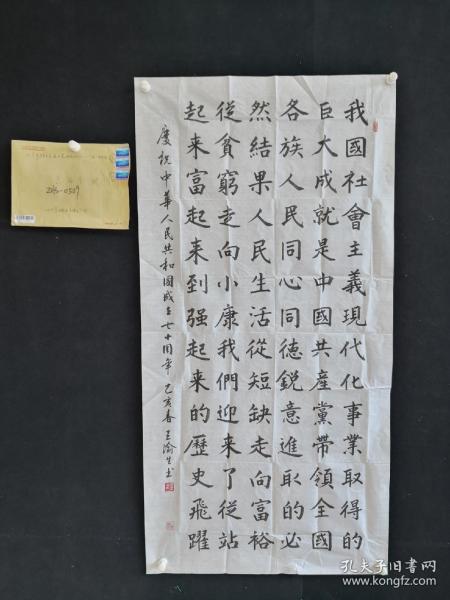 我國社會主義現代化事業取得的
巨大成就是中國共産黨帶領全國
各族人民同心同德鋭意進取的必
然結果人民生活從短缺走向富裕
從貧窮走向小康我們迎來了從站
起来富起来到强起来的歷史飛躍
慶祝中華人民共和國成立七十周年 己亥春 王瀹生书
2013-0507
孔夫子旧书网
www.kongfz.com